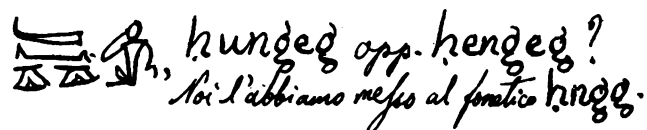 , ḥungeg opp. ḥengeg?
Noi l'abbiamo messo al fonetico ḥngg.